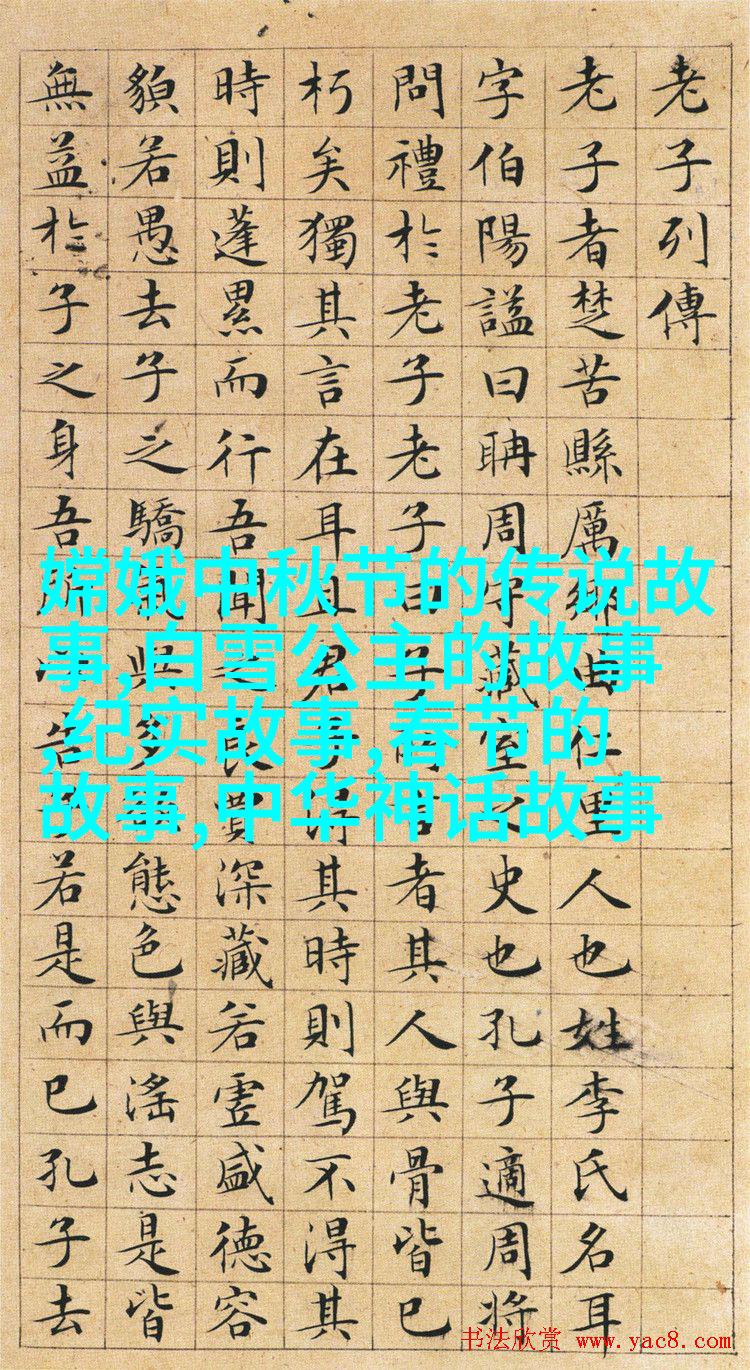 老子列傳
老子者楚苦縣厲鄉曲仁里人也姓李氏名耳
字伯陽謚曰聃周守藏室之史也孔子適周將
問禮於老子老子曰子所言者其人與骨皆已
朽矣獨其言在耳且君子得其時則駕不得其
時則蓬累而行吾聞之良賈深藏若虛盛德容
貌若愚去子之驕氣與多態色與淫志是皆
無益於子之身吾所告若是而已孔子去
嫦娥中秋节的传说故
事,白雪公主的故事
,纪实故事,春节的
故事,中华神话故事
书法欣赏 www.yac8.com